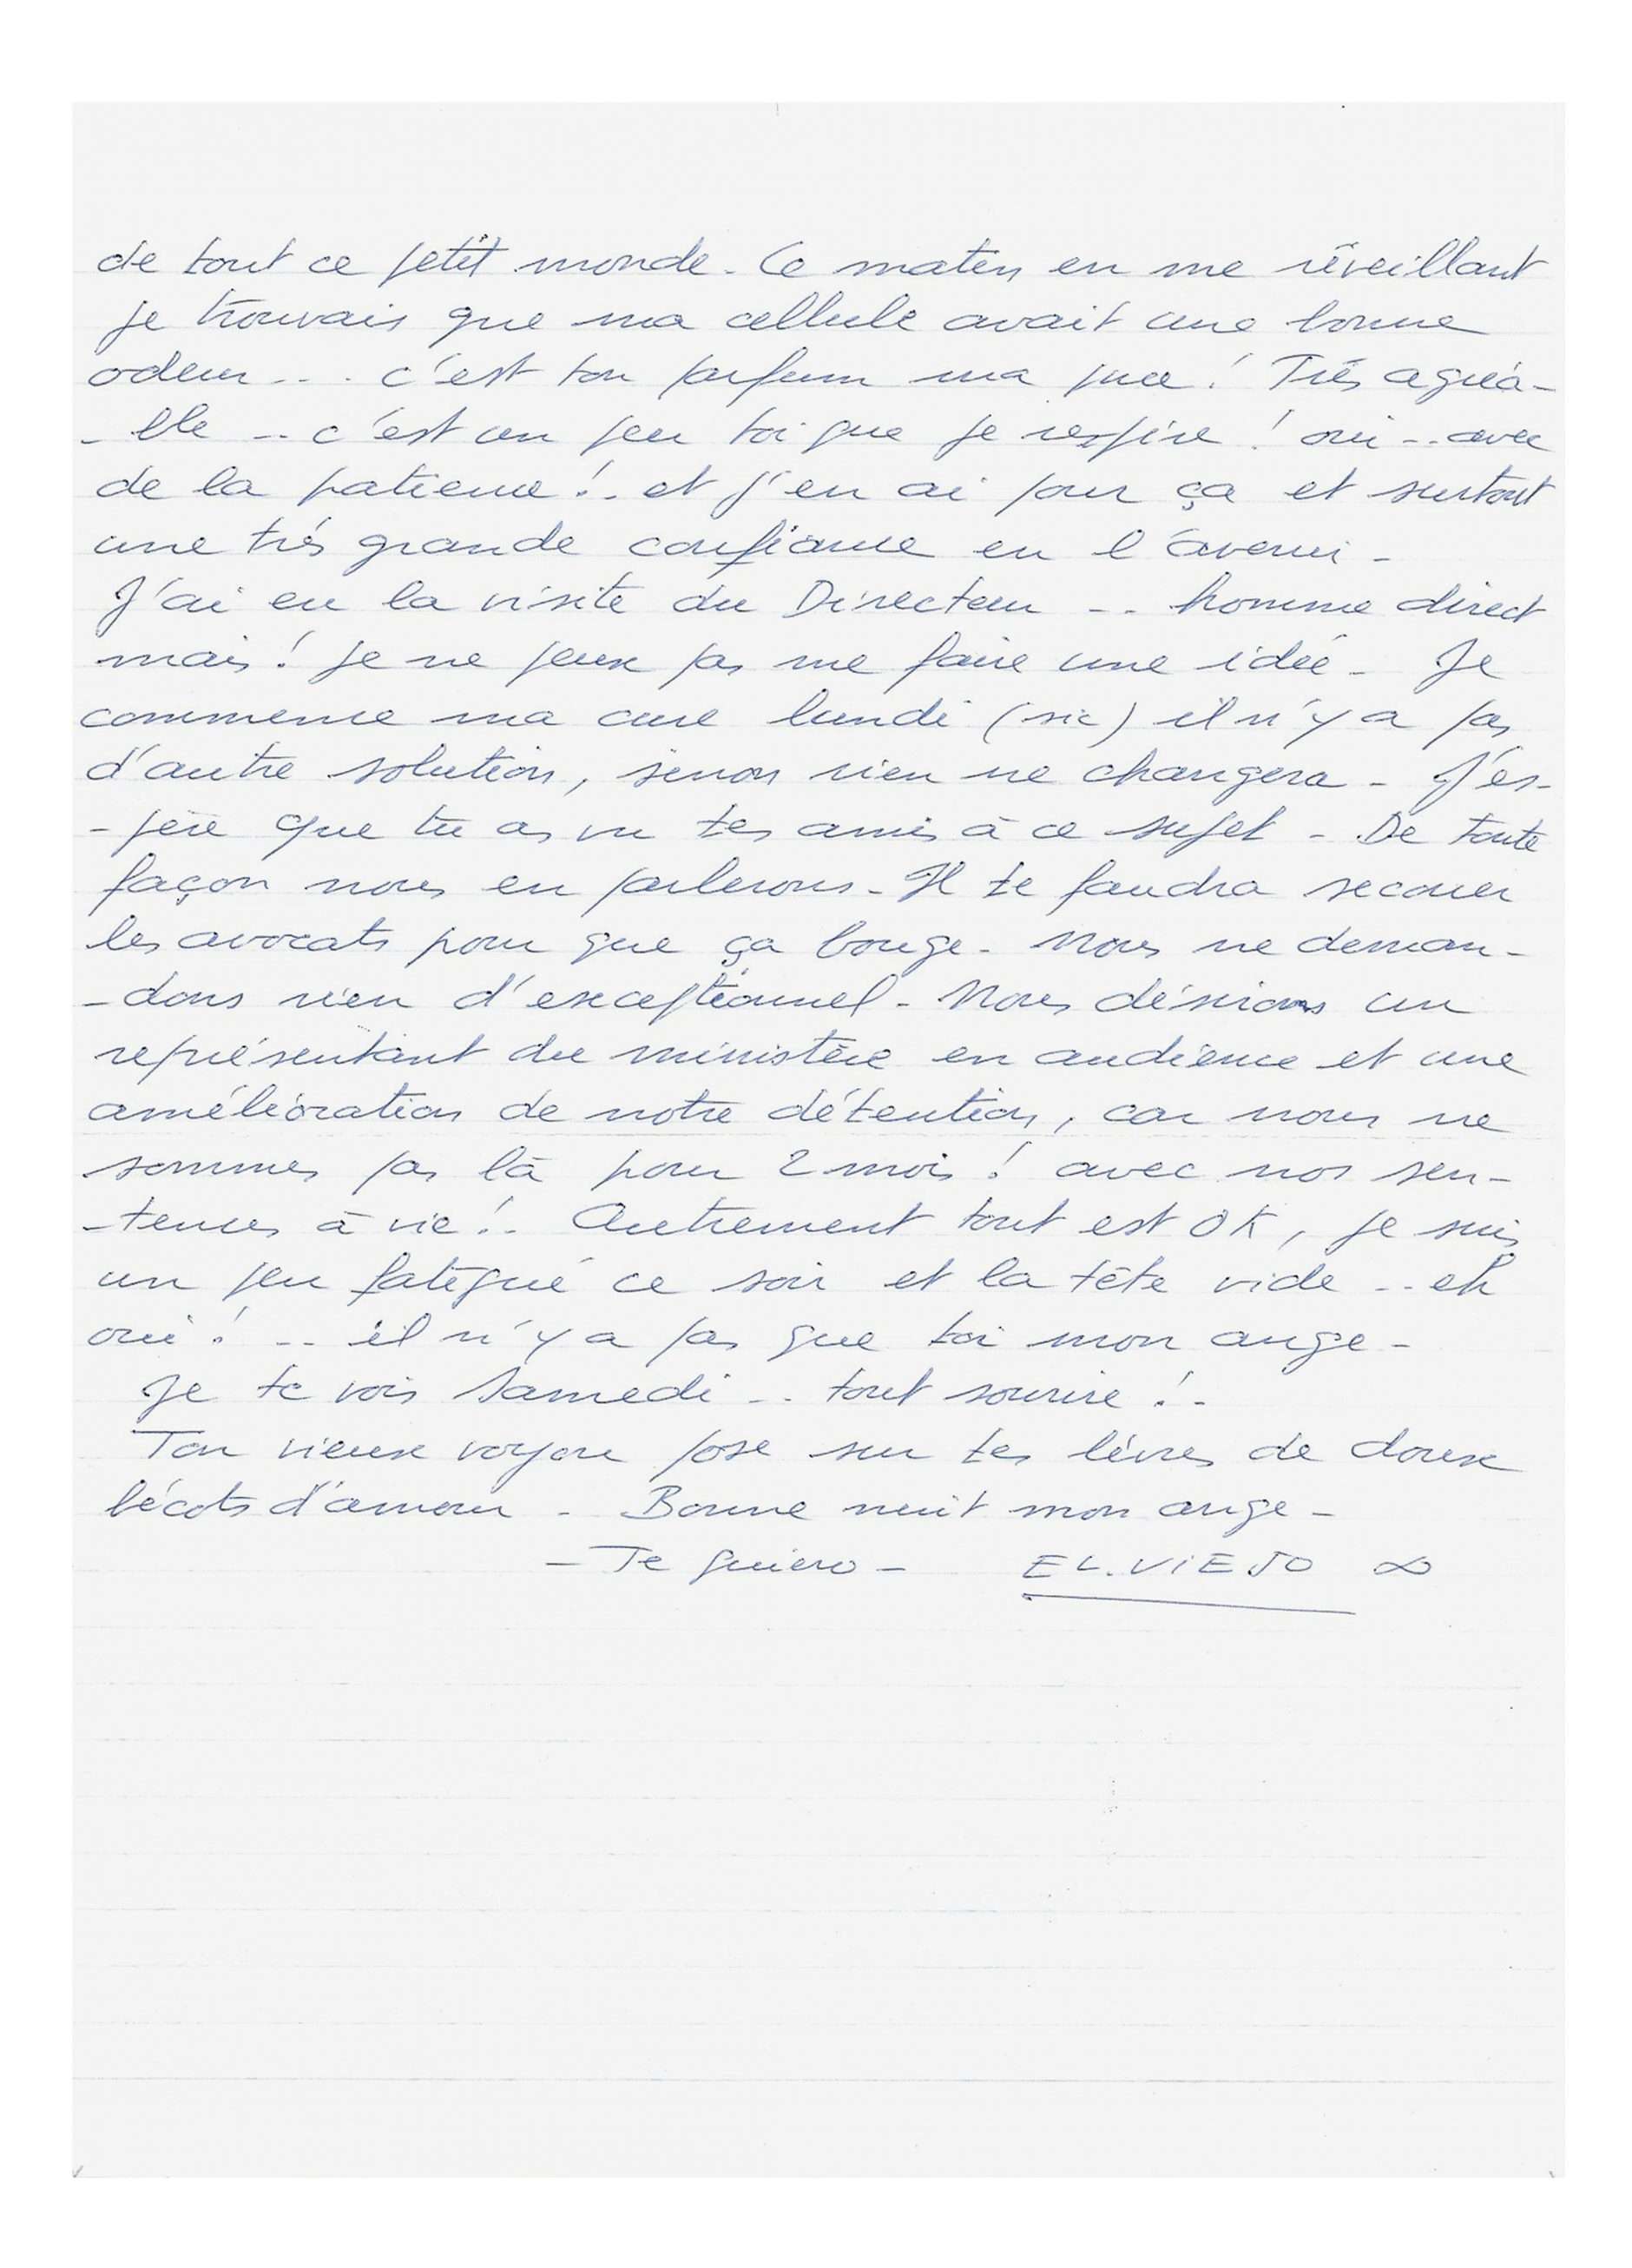 de tout ce petit monde. Ce matin en me réveillant
je trouvais que ma cellule avait une bonne
odeur... c'est ton parfum ma puce! Très agréa-
-ble .. c'est un peu toi que je respire! oui .. avec
de la patience!.. et j'en ai pour ça et surtout
une très grande confiance en l'avenir -
J'ai eu la visite du Directeur .. homme direct
mais! je ne peux pas me faire une idée - Je
commence ma cure lundi (sic) il n'y a pas
d'autre solution, sinon rien ne changera - J'es-
-père que tu as vu tes amis à ce sujet - De toute
façon nous en parlerons - Il te faudra secouer
les avocats pour que ça bouge - Nous ne deman-
-dons rien d'exceptionnel - Nous désirons un
représentant du ministère en audience et une
amélioration de notre détention, car nous ne
sommes pas là pour 2 mois! avec nos sen-
-tences à vie!.. Autrement tout est OK, je suis
un peu fatigué ce soir et la tête vide .. eh
oui! .. il n'y a pas que toi mon ange -
Je te vois Samedi .. tout sourire!.
Ton vieux voyou pose sur tes lèvres de doux
bécots d'amour - Bonne nuit mon ange -
- Te quiero - EL.VIEJO ∞